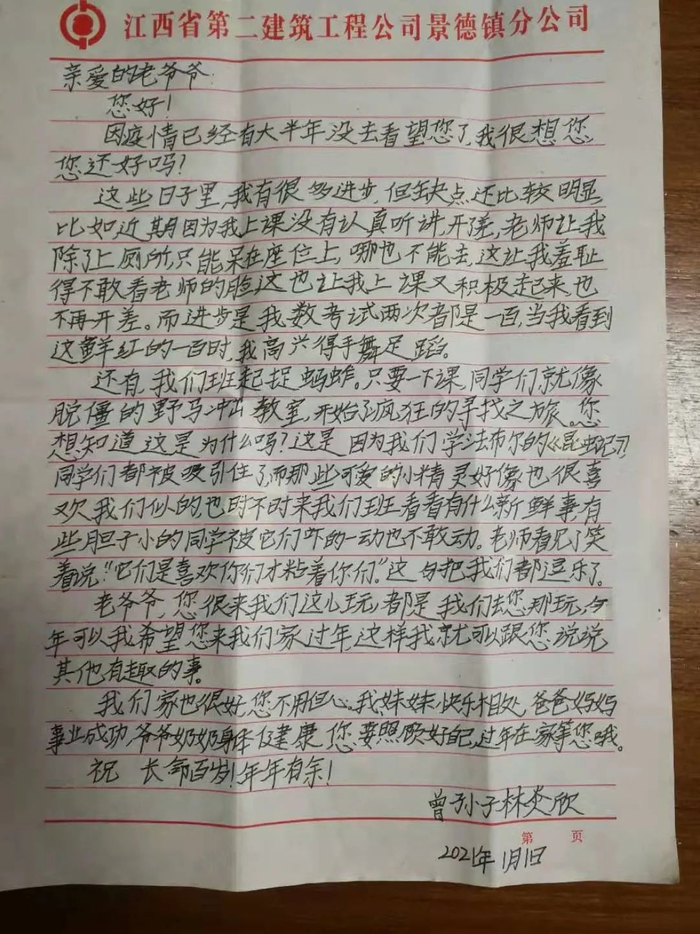 江西省第二建筑工程公司景德镇分公司
亲爱的老爷爷:
您好!
因疫情已经有大半年没去看望您了,我很想您,
您还好吗?
这些日子里,我有很多进步,但缺点还比较明显
比如近期因为我上课没有认真听讲,开差,老师让我
除了上厕所,只能呆在座位上,哪也不能去,这让我羞耻
得不敢看老师的脸这也让我上课又积极起来,也
不再开差。而进步是我数考试两次都是一百,当我看到
这鲜红的一百时,我高兴得手舞足蹈。
还有,我们班起捉蚂蚱。只要一下课,同学们就像
脱僵的野马冲出教室,开始了疯狂的寻找之旅。您
想知道这是为什么吗?这是因为我们学法布尔的《昆虫记》,
同学们都被吸引住了而那些可爱的小精灵好像也很喜
欢我们似的也时不时来我们班看看有什么新鲜事有
些胆子小的同学被它们吓的一动也不敢动。老师看见了笑
着说:“它们是喜欢你们才粘着你们。”这句把我们都逗乐了。
老爷爷,您很来我们这儿玩,都是我们去您那玩,今
年可以我希望您来我们家过年,这样我就可以跟您说说
其他有趣的事。
我们家也很好,您不用但心。我妹妹快乐相处,爸爸妈妈
事业成功,爷爷奶奶身体健康,您要照顾好自己,过年在家等您哦。
祝 长命百岁!年年有余!
曾孙子林炎欣
第 页
2021年1月1日